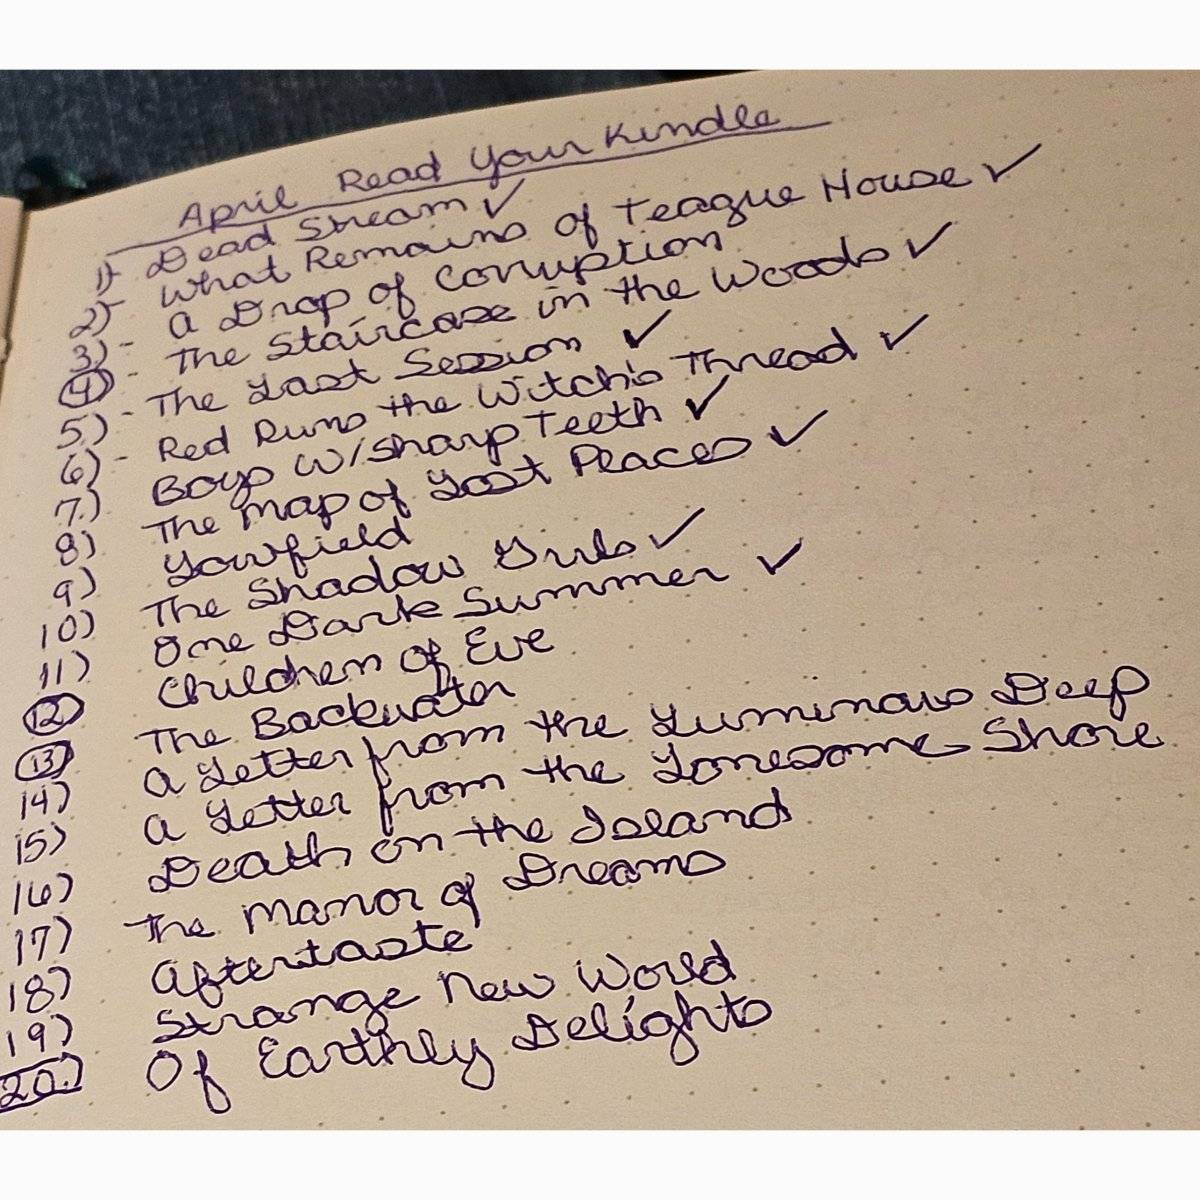 April Read Your Kindle
1) - Dead Stream ✓
2) - What Remains of Teague House ✓
3) - A Drop of Corruption
4) - The Staircase in the Woods ✓
5) - The Last Session ✓
6) - Red Runs the Witch's Thread ✓
7) Boys W/Sharp Teeth ✓
8) The Map of Lost Places ✓
9) Lowfield
10) The Shadow Girls ✓
11) One Dark Summer ✓
12) Children of Eve
13) The Backwater
14) A Letter from the Luminous Deep
15) A Letter from the Lonesome Shore
16) Death on the Island
17) The Manor of Dreams
18) Aftertaste
19) Strange New World
20) Of Earthly Delights